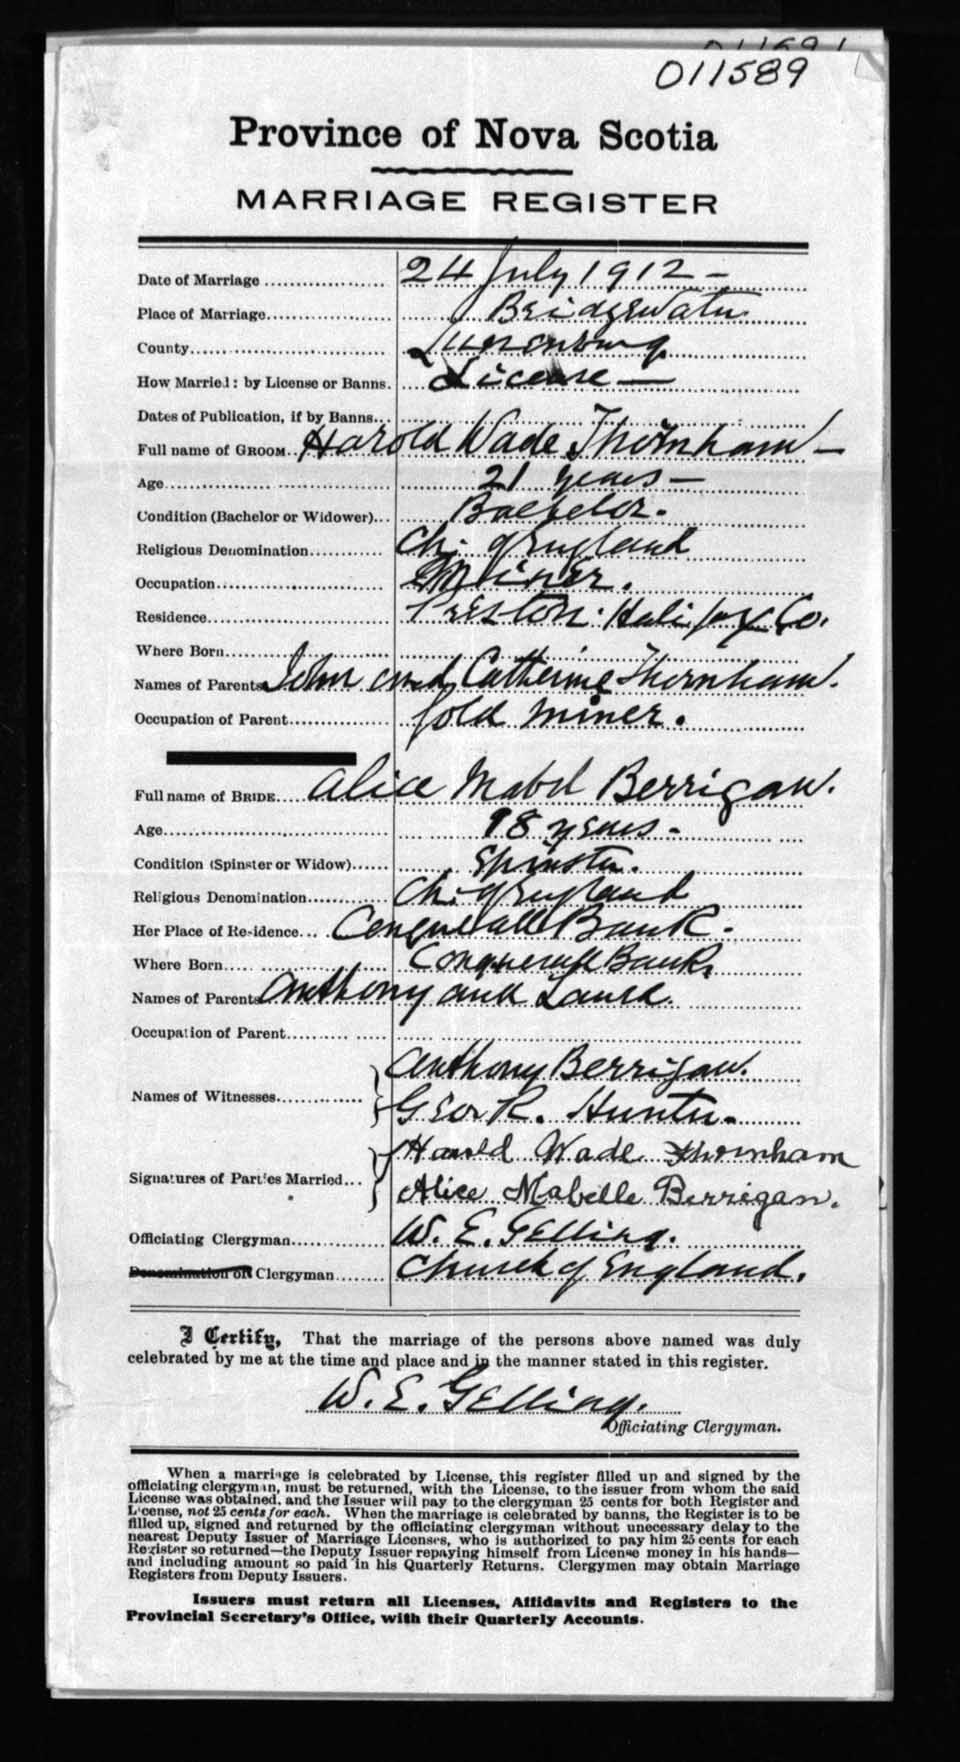 011589
Province of Nova Scotia
MARRIAGE REGISTER
Date of Marriage 24 July 1912 -
Place of Marriage Bridgewater
County Lunenburg
How Married: by License or Banns. License —
Dates of Publication, if by Banns
Full name of GROOM Harold Wade Thornham —
Age 21 years —
Condition (Bachelor or Widower) Bachelor.
Religious Denomination Ch. of England
Occupation Miner.
Residence Preston. Halifax Co.
Where Born
Names of Parents John and Catherine Thornham.
Occupation of Parent Gold miner.
Full name of BRIDE Alice Mabel Berrigan.
Age 18 years -
Condition (Spinster or Widow) Spinster.
Religious Denomination Ch. of England
Her Place of Residence Conquerall Bank.
Where Born Conquerall Bank.
Names of Parents Anthony and Laura.
Occupation of Parent
Names of Witnesses Anthony Berrigan.
Geo R. Hunter.
Signatures of Parties Married Harold Wade Thornham
Alice Mabelle Berrigan.
Officiating Clergyman W. E. Gelling.
Denomination of Clergyman Church of England.
I Certify, That the marriage of the persons above named was duly
celebrated by me at the time and place and in the manner stated in this register.
W. E. Gelling.
Officiating Clergyman.
When a marriage is celebrated by License, this register filled up and signed by the
officiating clergyman, must be returned, with the License, to the issuer from whom the said
License was obtained, and the Issuer will pay to the clergyman 25 cents for both Register and
License, not 25 cents for each. When the marriage is celebrated by banns, the Register is to be
filled up, signed and returned by the officiating clergyman without unecessary delay to the
nearest Deputy Issuer of Marriage Licenses, who is authorized to pay him 25 cents for each
Register so returned—the Deputy Issuer repaying himself from License money in his hands—
and including amount so paid in his Quarterly Returns. Clergymen may obtain Marriage
Registers from Deputy Issuers.
Issuers must return all Licenses, Affidavits and Registers to the
Provincial Secretary's Office, with their Quarterly Accounts.